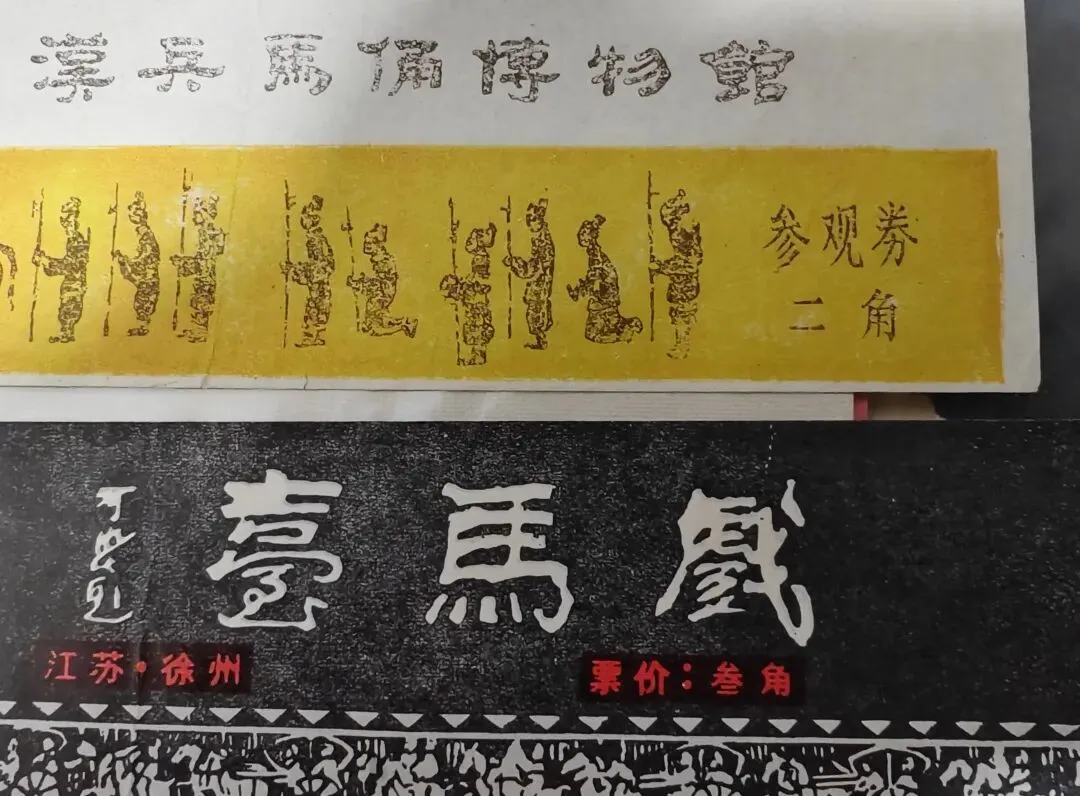 漢兵馬俑博物館
参观券
二角
戲馬臺
江苏·徐州
票价：叁角